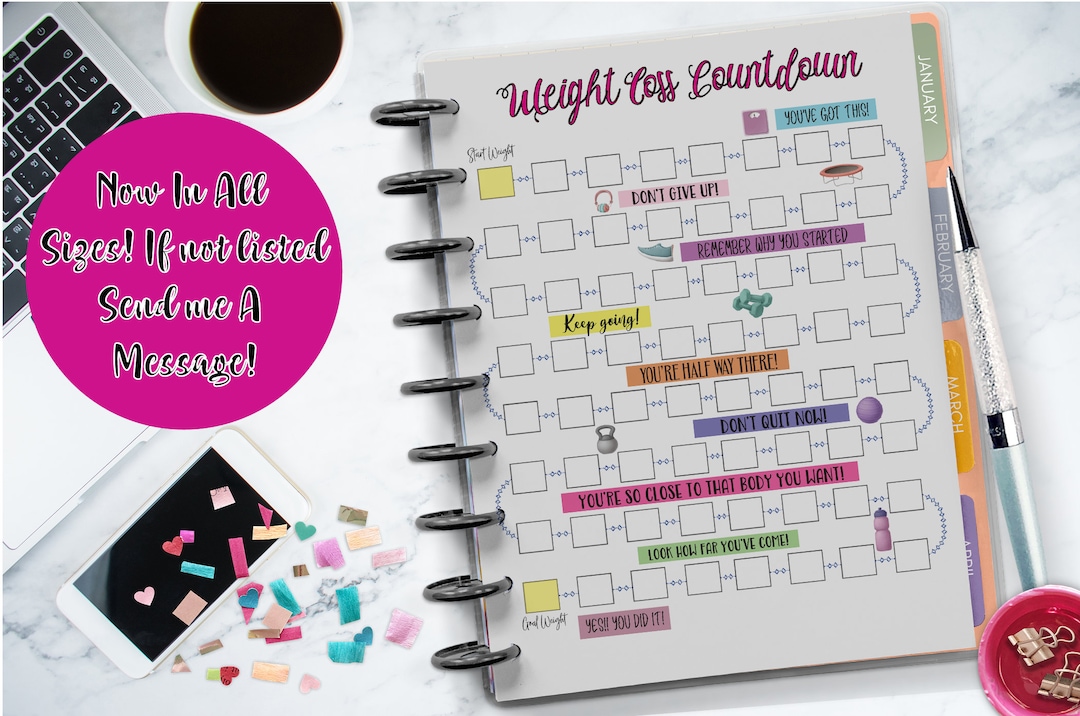 Weight Loss Countdown
YOU'VE GOT THIS!
Start Weight
DON'T GIVE UP!
REMEMBER WHY YOU STARTED
Keep going!
YOU'RE HALF WAY THERE!
DON'T QUIT NOW!
YOU'RE SO CLOSE TO THAT BODY YOU WANT!
LOOK HOW FAR YOU'VE COME!
Goal Weight
YES!! YOU DID IT!
JANUARY
FEBRUARY
MARCH
APRIL
Now In All
Sizes! If not listed
Send me A
Message!